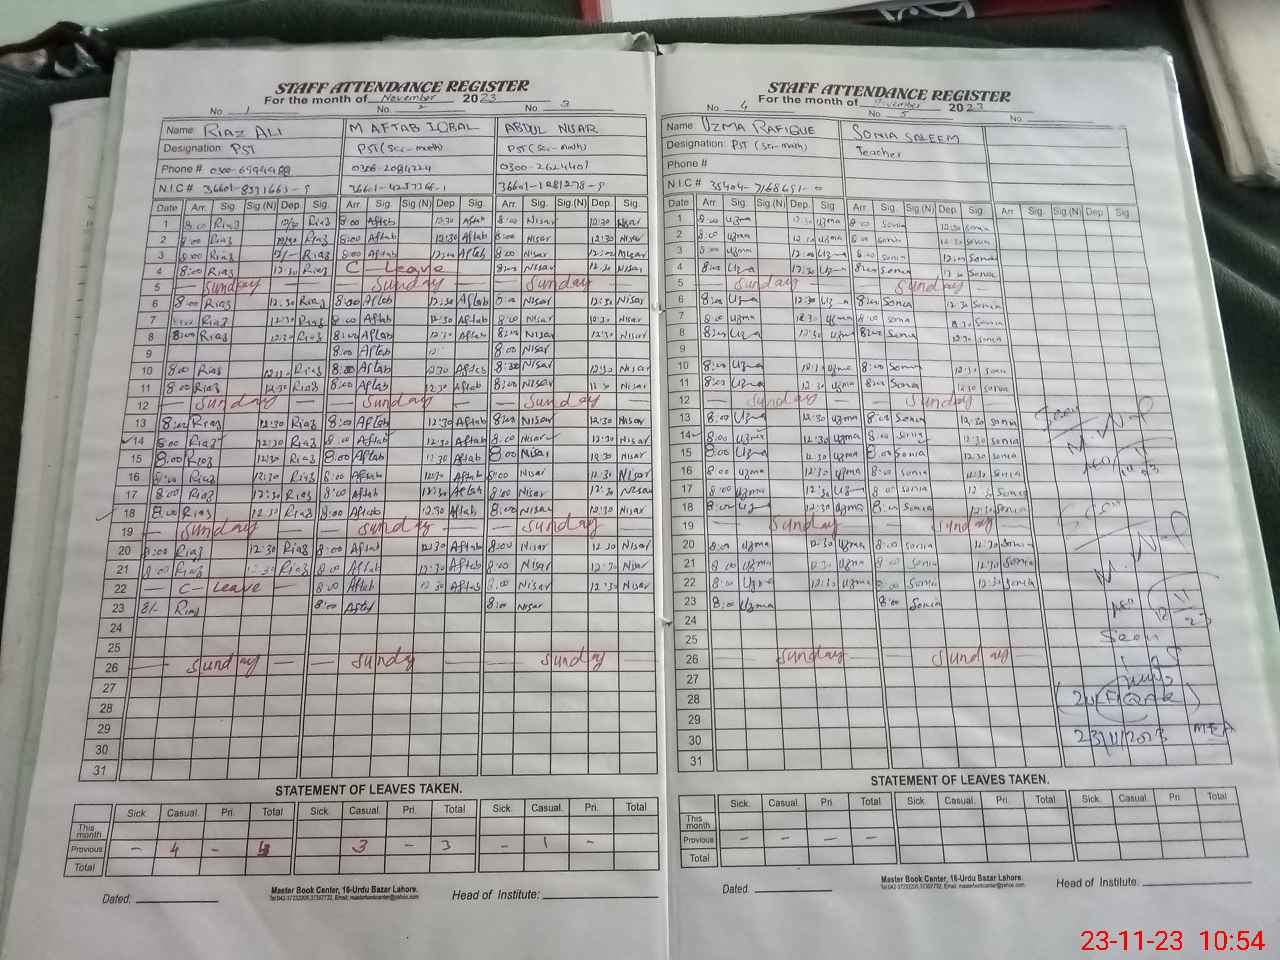 STAFF ATTENDANCE REGISTER
For the month of November 2023
No 1 No. 2 No 3
Name: RIAZ ALI M AFTAB IQBAL ABDUL NISAR
Designation: PST PST (Sci-math) PST (Sci-math)
Phone #
N.I.C #
Date Arr. Sig. Sig.(N) Dep. Sig. Arr. Sig. Sig.(N) Dep. Sig. Arr. Sig. Sig.(N) Dep. Sig.
1 8:00 Riaz Riaz 8:00 Aftab 12:30 Aftab 8:00 Nisar 12:30 Nisar
2 8:00 Riaz Riaz 8:00 Aftab 12:30 Aftab 8:00 Nisar 12:30 Nisar
3 8:00 Riaz Riaz 8:00 Aftab Aftab 8:00 Nisar Nisar
4 8:00 Riaz 12:30 Riaz C - Leave 8:00 Nisar 12:30 Nisar
5 Sunday Sunday Sunday
6 8:00 Riaz 12:30 Riaz 8:00 Aftab 12:30 Aftab 8:00 Nisar 12:30 Nisar
7 Riaz 12:30 Riaz 8:00 Aftab 12:30 Aftab 8:00 Nisar 12:30 Nisar
8 8:00 Riaz 12:30 Riaz 8:00 Aftab 12:30 Aftab 8:00 Nisar 12:30 Nisar
9 8:00 Aftab 8:00 Nisar
10 8:00 Riaz Riaz 8:00 Aftab 12:30 Aftab 8:00 Nisar 12:30 Nisar
11 8:00 Riaz 12:30 Riaz 8:00 Aftab 12:30 Aftab 8:00 Nisar Nisar
12 Sunday Sunday Sunday
13 8:00 Riaz 12:30 Riaz 8:00 Aftab 12:30 Aftab 8:00 Nisar 12:30 Nisar
14 8:00 Riaz 12:30 Riaz 8:00 Aftab 12:30 Aftab 8:00 Nisar 12:30 Nisar
15 8:00 Riaz 12:30 Riaz 8:00 Aftab 12:30 Aftab 8:00 Nisar 12:30 Nisar
16 8:00 Riaz 12:30 Riaz 8:00 Aftab 12:30 Aftab 8:00 Nisar 12:30 Nisar
17 8:00 Riaz 12:30 Riaz 8:00 Aftab 12:30 Aftab 8:00 Nisar 12:30 Nisar
18 8:00 Riaz 12:30 Riaz 8:00 Aftab 12:30 Aftab 8:00 Nisar 12:30 Nisar
19 Sunday Sunday Sunday
20 8:00 Riaz 12:30 Riaz 8:00 Aftab 12:30 Aftab 8:00 Nisar 12:30 Nisar
21 8:00 Riaz 12:30 Riaz 8:00 Aftab 12:30 Aftab 8:00 Nisar 12:30 Nisar
22 C - Leave 8:00 Aftab 12:30 Aftab 8:00 Nisar 12:30 Nisar
23 8/- Riaz 8:00 Aftab 8:00 Nisar
24
25
26 Sunday Sunday Sunday
27
28
29
30
31
STATEMENT OF LEAVES TAKEN.
Sick. Casual. Pri. Total Sick. Casual. Pri. Total Sick. Casual. Pri. Total
This month
Previous - 4 - 4 3 - 3 - 1 -
Total
Dated: Master Book Center, 16-Urdu Bazar Lahore. Head of Institute:
STAFF ATTENDANCE REGISTER
For the month of November 2023
No 4 No. 5 No.
Name: UZMA RAFIQUE SONIA SALEEM
Designation: PST (Sci-math) Teacher
Phone #
N.I.C #
Date Arr. Sig. Sig.(N) Dep. Sig. Arr. Sig. Sig.(N) Dep. Sig. Arr. Sig. Sig.(N) Dep. Sig.
1 8:00 Uzma 12:30 Uzma 8:00 Sonia 12:30 Sonia
2 8:00 Uzma 12:30 Uzma 8:00 Sonia 12:30 Sonia
3 8:00 Uzma Uzma 8:00 Sonia Sonia
4 8:00 Uzma 12:30 Uzma 8:00 Sonia 12:30 Sonia
5 Sunday Sunday
6 8:00 Uzma 12:30 Uzma 8:00 Sonia 12:30 Sonia
7 8:00 Uzma 12:30 Uzma 8:00 Sonia 12:30 Sonia
8 8:00 Uzma 12:30 Uzma 8:00 Sonia 12:30 Sonia
9
10 8:00 Uzma 12:30 Uzma 8:00 Sonia 12:30 Sonia
11 8:00 Uzma 12:30 Uzma 8:00 Sonia 12:30 Sonia
12 Sunday Sunday
13 8:00 Uzma 12:30 Uzma 8:00 Sonia 12:30 Sonia
14 8:00 Uzma 12:30 Uzma 8:00 Sonia 12:30 Sonia
15 8:00 Uzma 12:30 Uzma 8:00 Sonia 12:30 Sonia
16 8:00 Uzma 12:30 Uzma 8:00 Sonia 12:30 Sonia
17 8:00 Uzma 12:30 Uzma 8:00 Sonia 12:30 Sonia
18 8:00 Uzma 12:30 Uzma 8:00 Sonia 12:30 Sonia
19 Sunday Sunday
20 8:00 Uzma 12:30 Uzma 8:00 Sonia 12:30 Sonia
21 8:00 Uzma 12:30 Uzma 8:00 Sonia 12:30 Sonia
22 8:00 Uzma 12:30 Uzma 8:00 Sonia 12:30 Sonia
23 8:00 Uzma 8:00 Sonia
24
25
26 Sunday Sunday
27
28
29
30
31
Seen
23/11/2023 MEA
STATEMENT OF LEAVES TAKEN.
Sick. Casual. Pri. Total Sick. Casual. Pri. Total Sick. Casual. Pri. Total
This month
Previous - - - -
Total
Dated. Master Book Center, 16-Urdu Bazar Lahore. Head of Institute:
23-11-23 10:54